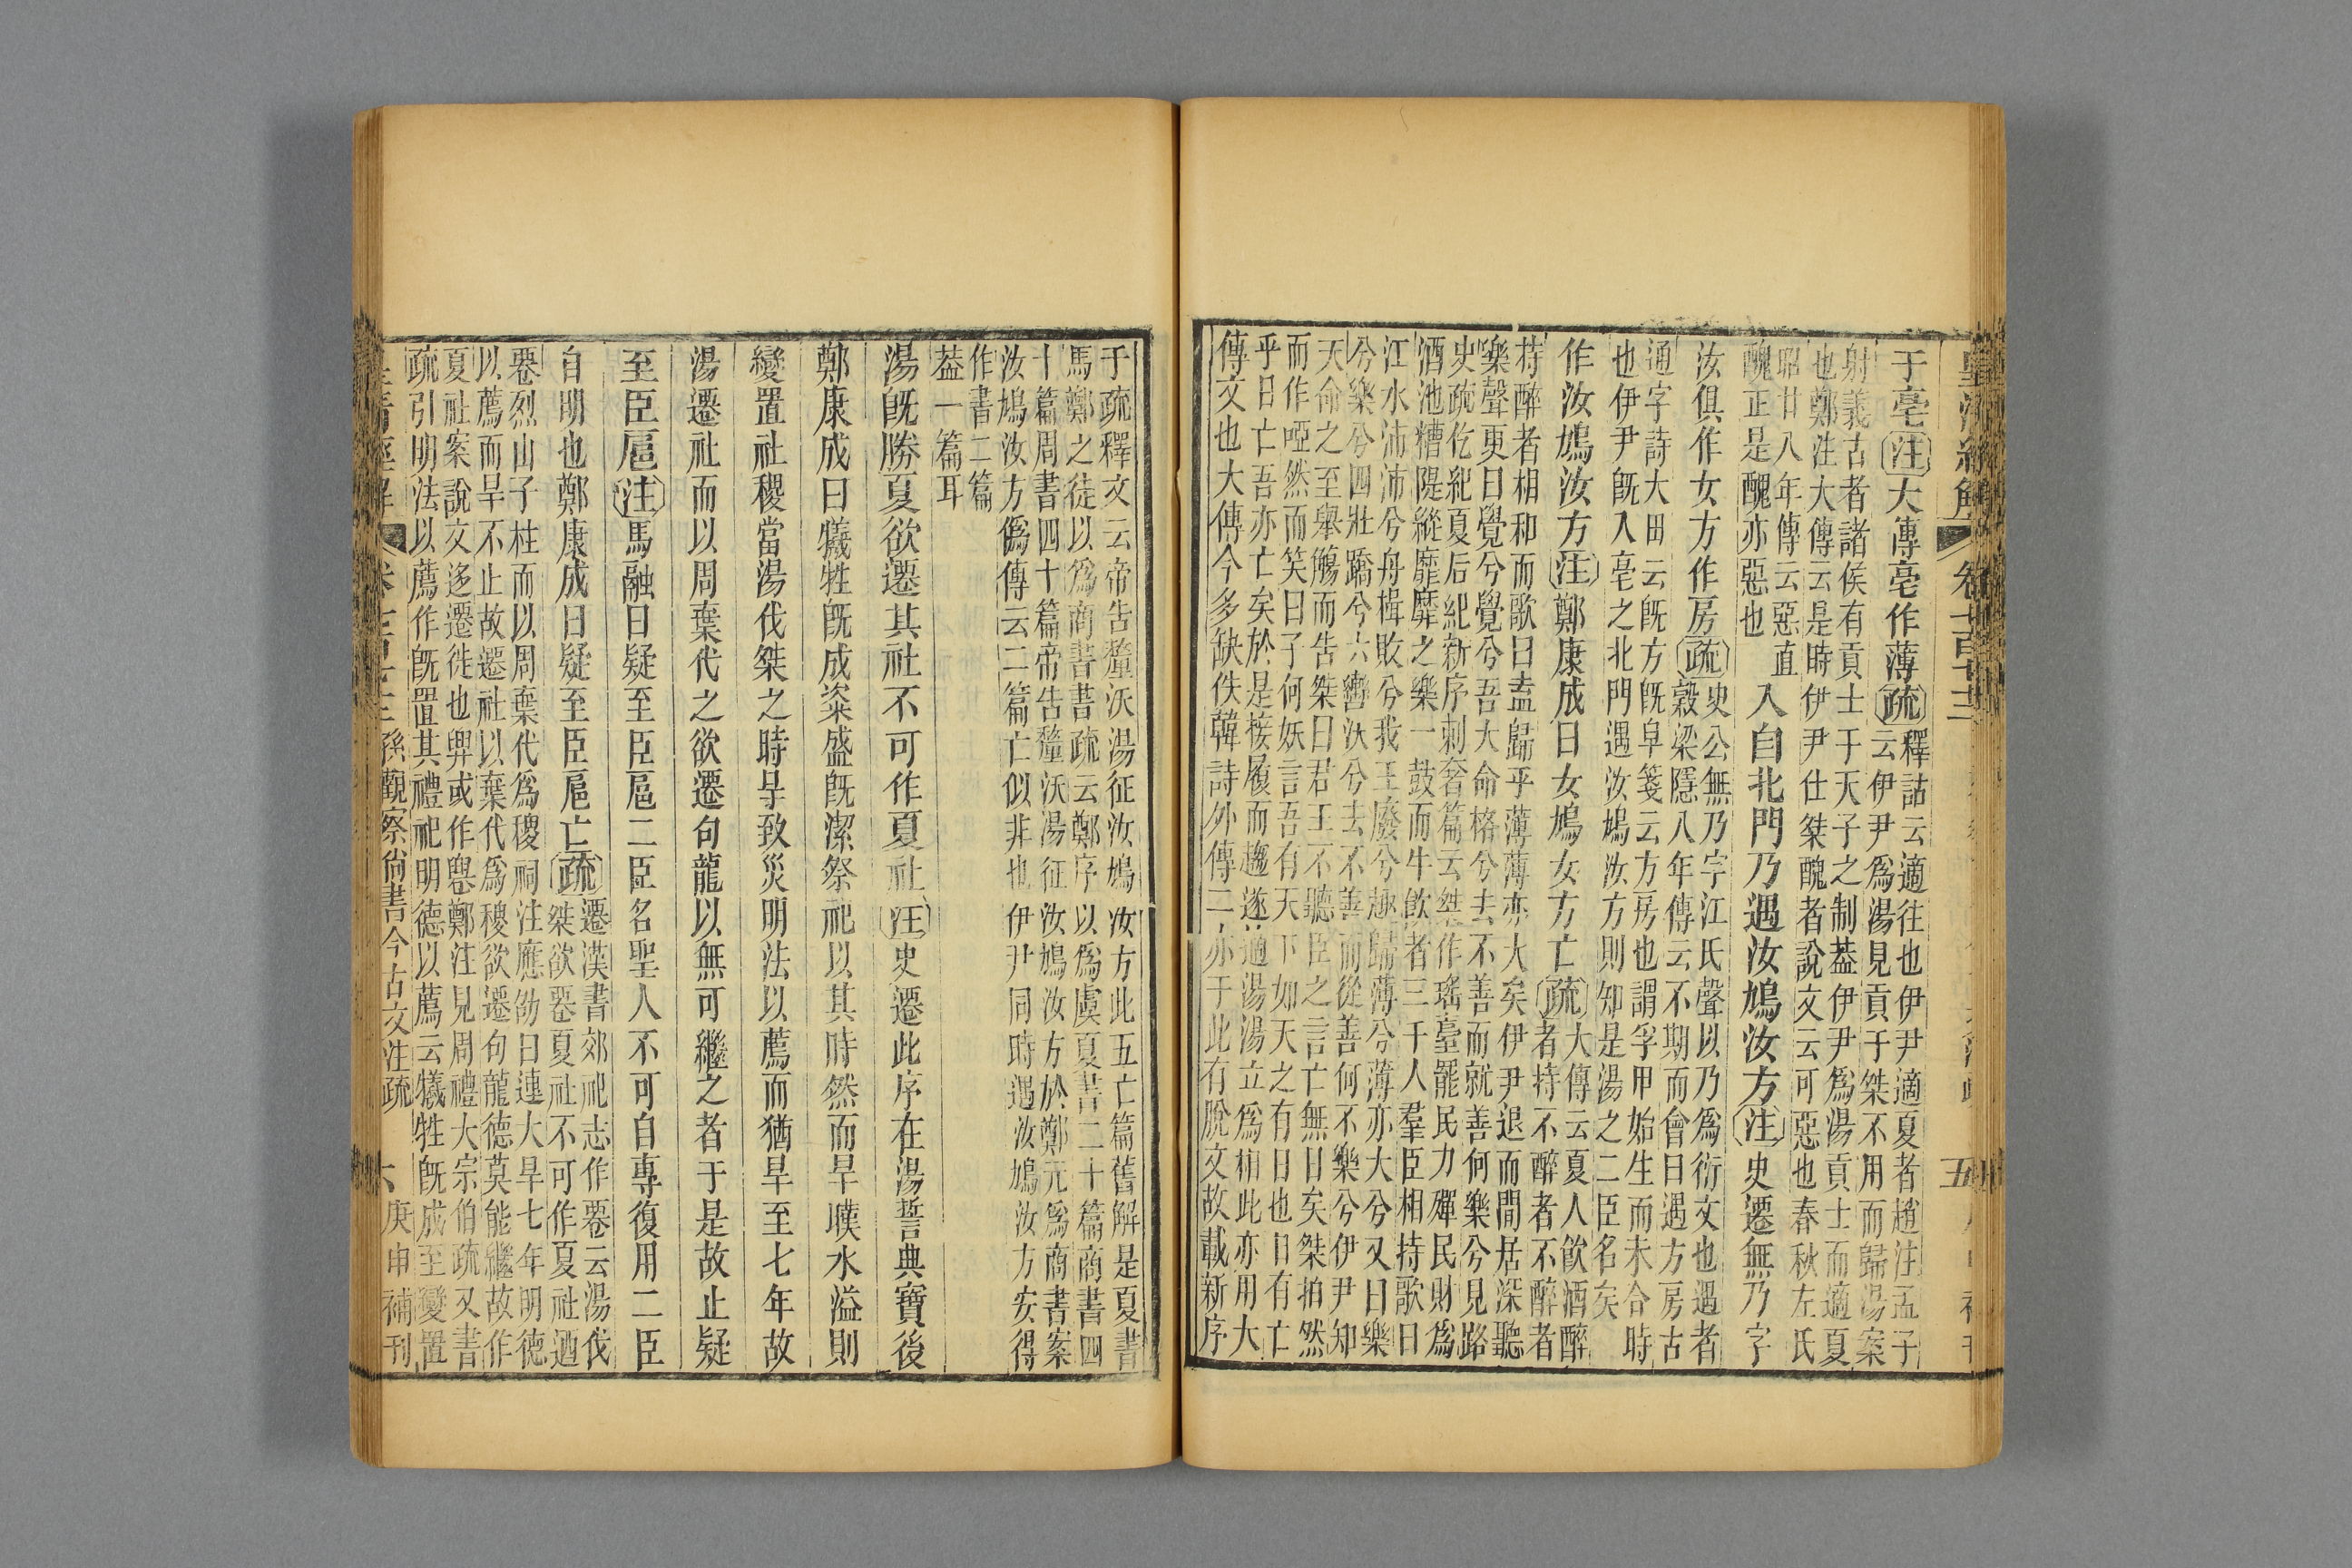 皇清經解 卷七百七十三 五
于亳注大傳亳作薄疏釋詁云適往也伊尹適夏者趙注孟子
云伊尹爲湯見貢于桀不用而歸湯案
射義古者諸侯有貢士于天子之制葢伊尹爲湯貢士而適夏
也鄭注大傳云是時伊尹仕桀醜者說文云可惡也春秋左氏
昭廿八年傳云惡直
醜正是醜亦惡也
入自北門乃遇汝鳩汝方注史遷無乃字
汝俱作女方作房疏史公無乃字江氏聲以乃爲衍文也遇者
穀梁隱八年傳云不期而會曰遇方房古
通字詩大田云旣方旣皁箋云方房也謂孚甲始生而未合時
也伊尹旣入亳之北門遇汝鳩汝方則知是湯之二臣名矣
作汝鳩汝方注鄭康成曰女鳩女方亡疏大傳云夏人飮酒醉
者持不醉者不醉者
持醉者相和而歌曰盍歸乎薄薄亦大矣伊尹退而閒居深聽
樂聲更曰覺兮覺兮吾大命格兮去不善而就善何樂兮見路
史疏仡紀夏后紀新序刺奢篇云桀作瑤臺罷民力殫民財爲
酒池糟隄縱靡靡之樂一鼓而牛飮者三千人羣臣相持歌曰
江水沛沛兮舟楫敗兮我王廢兮趣歸薄兮薄亦大兮又曰樂
兮樂兮四壯蹻兮六轡沃兮去不善而從善何不樂兮伊尹知
天命之至舉觴而告桀曰君王不聽臣之言亡無日矣桀拍然
而作啞然而笑曰子何妖言吾有天下如天之有日也日有亡
乎日亡吾亦亡矣於是接履而趨遂適湯湯立爲相此亦用大
傳文也大傳今多缺佚韓詩外傳二亦于此有脫文故載新序
于疏釋文云帝告釐沃湯征汝鳩汝方此五亡篇舊解是夏書
馬鄭之徒以爲商書書疏云鄭序以爲虞夏書二十篇商書四
十篇周書四十篇帝告釐沃湯征汝鳩汝方於鄭元爲商書案
汝鳩汝方僞傳云二篇亡似非也伊尹同時遇汝鳩汝方安得
作書二篇
葢一篇耳
湯旣勝夏欲遷其社不可作夏社注史遷此序在湯誓典寶後
鄭康成曰犧牲旣成粢盛旣潔祭祀以其時然而旱暵水溢則
變置社稷當湯伐桀之時旱致災明法以薦而猶旱至七年故
湯遷社而以周棄代之欲遷句龍以無可繼之者于是故止疑
至臣扈注馬融曰疑至臣扈二臣名聖人不可自專復用二臣
自明也鄭康成曰疑至臣扈亡疏遷漢書郊祀志作䙴云湯伐
桀欲䙴夏社不可作夏社迺
䙴烈山子柱而以周棄代爲稷祠注應劭曰連大旱七年明德
以薦而旱不止故遷社以棄代爲稷欲遷句龍德莫能繼故作
夏社案說文迻遷徙也䙴或作䙴鄭注見周禮大宗伯疏又書
疏引明法以薦作旣置其禮祀明德以薦云犧牲旣成至變置
皇清經解 卷七百七十三 孫觀察尙書今古文注疏 六 庚申補刊